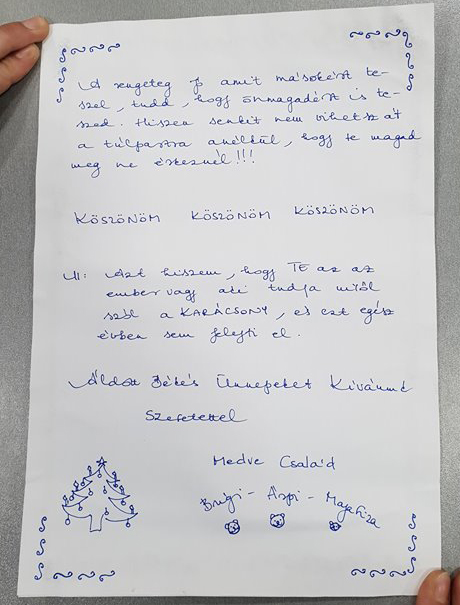 A rengeteg jó amit másokért te-
szel, tudd, hogy önmagadért is te-
szed. Hiszen senkit nem vihetsz át
a túlpartra anélkül, hogy te magad
meg ne érkeznél!!!
KÖSZÖNÖM KÖSZÖNÖM KÖSZÖNÖM
Ui: Azt hiszem, hogy TE az az
ember vagy aki tudja miről
szól a KARÁCSONY, és ezt egész
évben sem felejti el.
Áldott Békés Ünnepeket Kívánunk
Szeretettel
Medve Család
Brigi - Árpi -